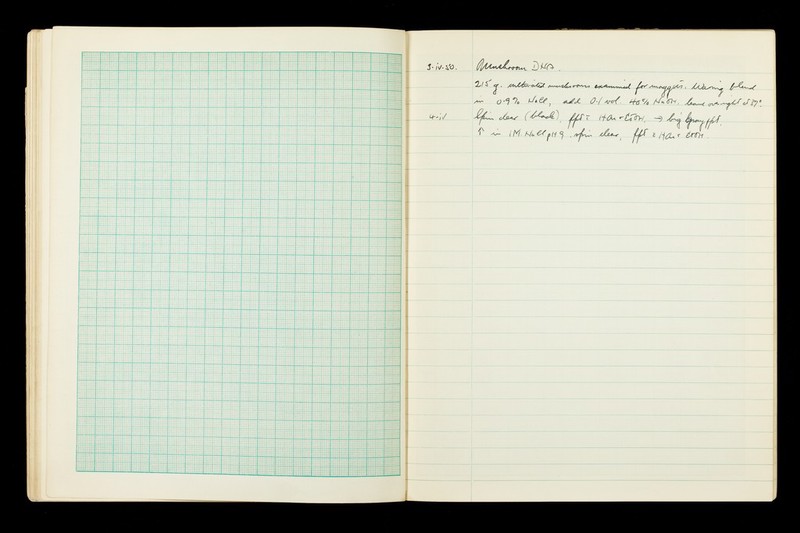 3.iv.50. Mushroom DNA.
215 g. cultivated mushrooms examined for maggots. Waring blend
in 0.9% NaCl, add 0.1 vol. 40% NaOH. leave overnight at 37°.
4.iv Spin clear (black), ppt HAc + EtOH, → big gray ppt.
in 1M NaCl pH 9. spin clear, ppt HAc + EtOH.